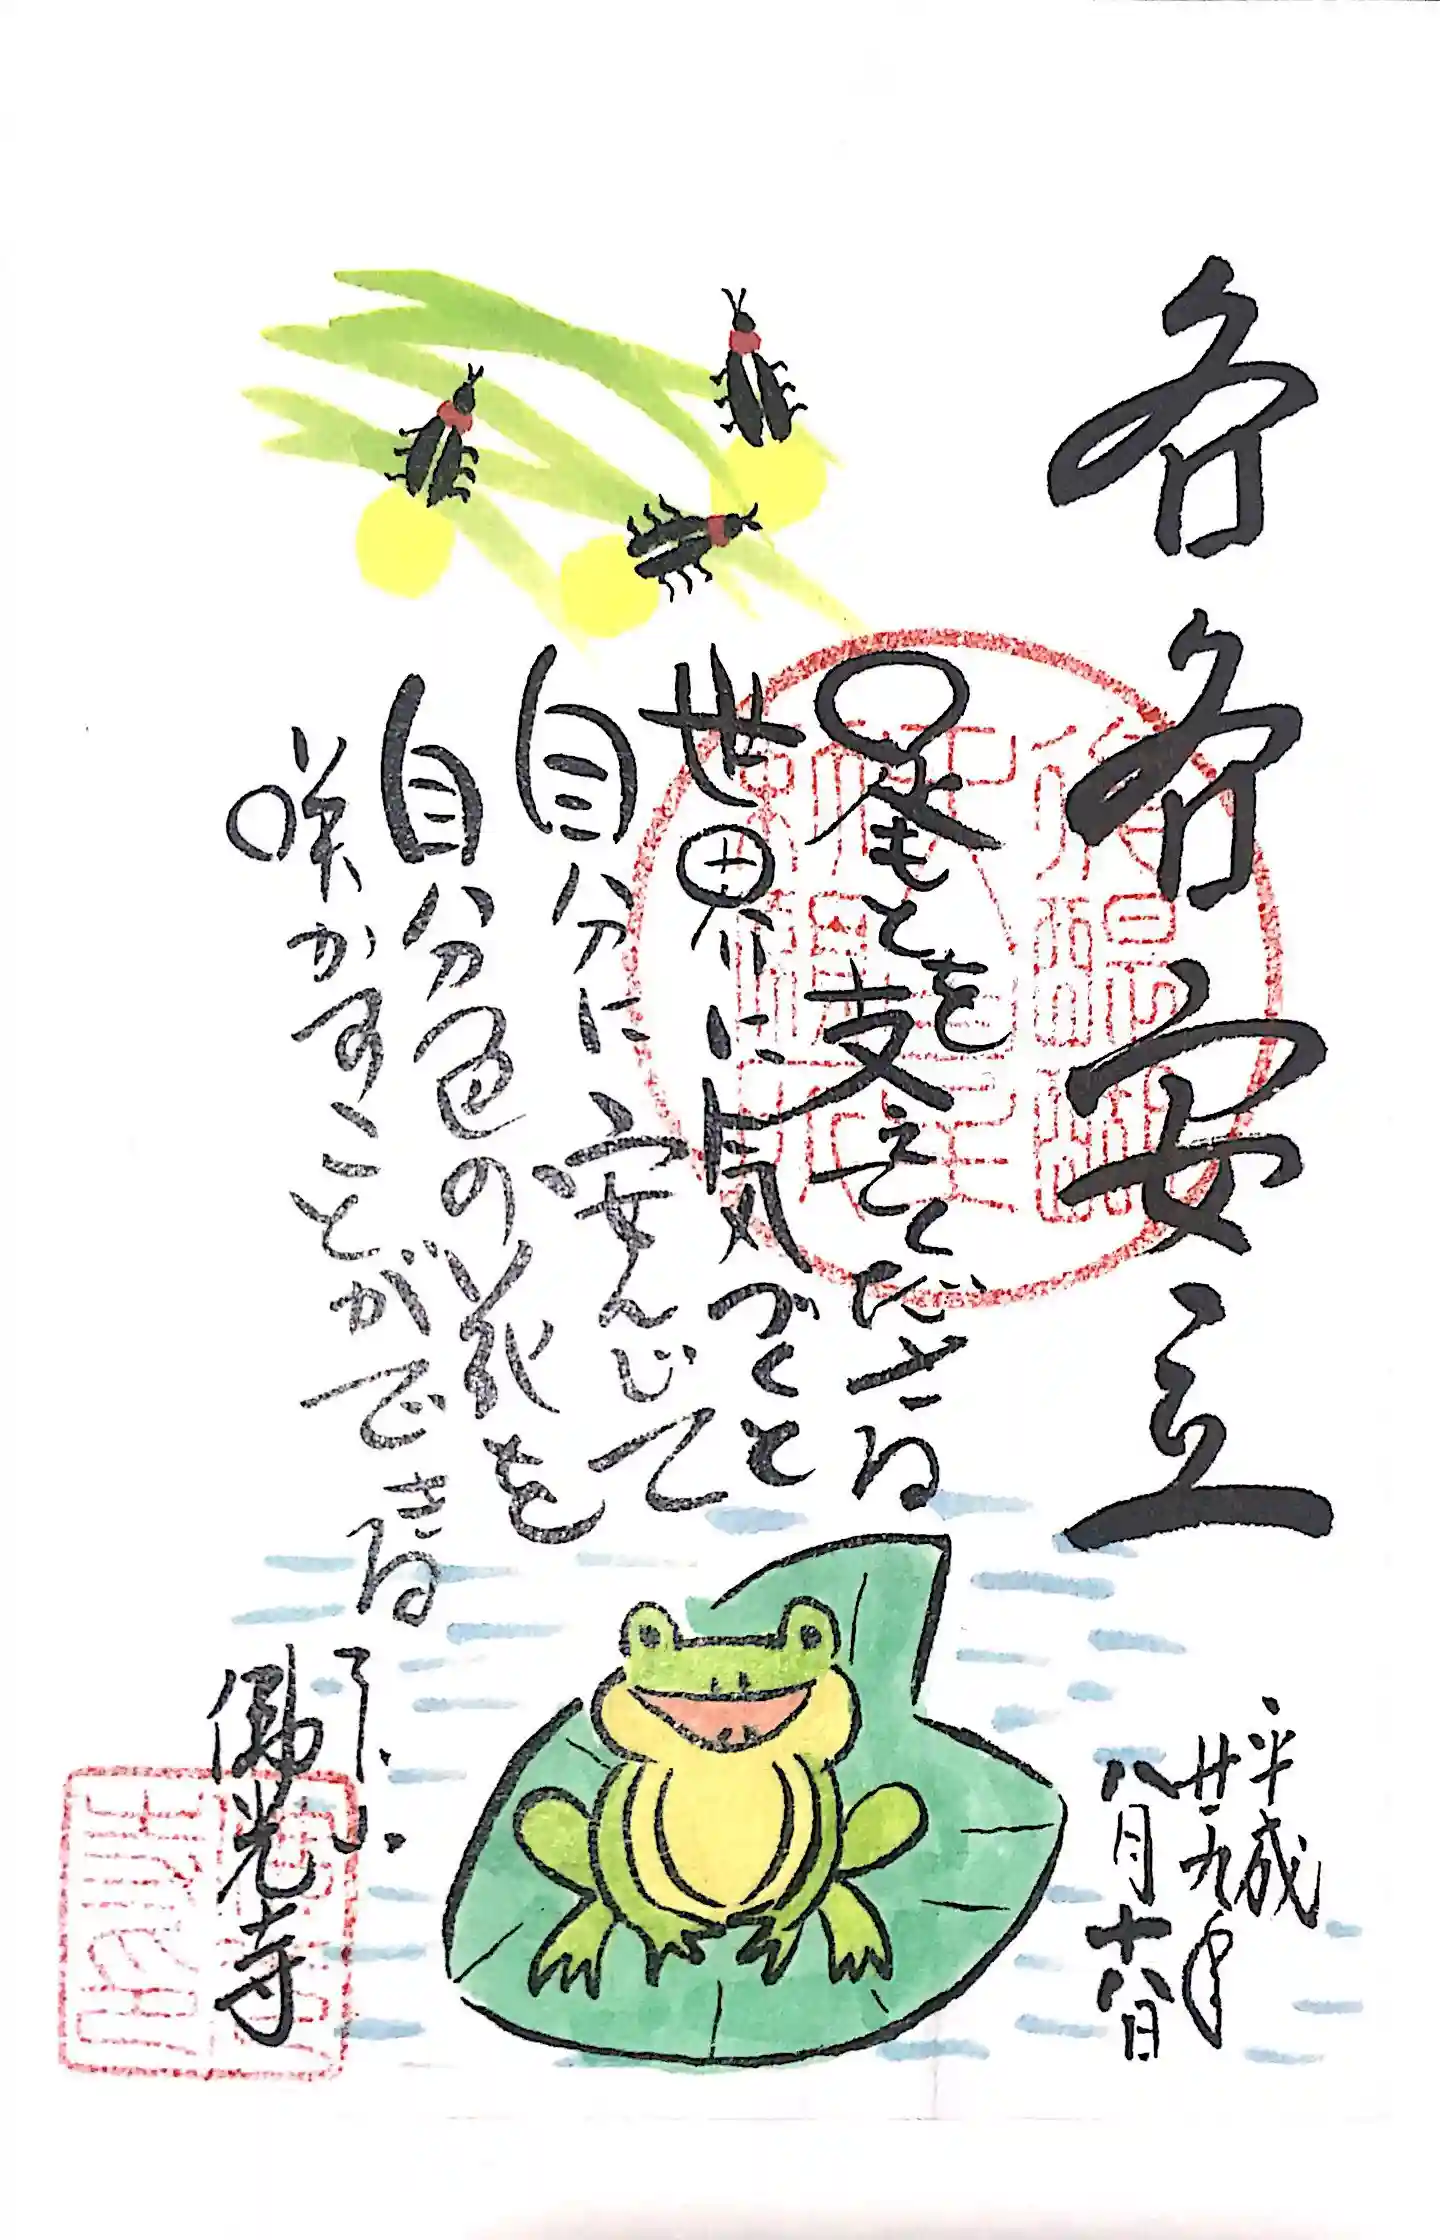 各各安立
足もとを支えてくださる
世界に気づくと
自分に安んじて
自分色の花を
咲かすことができる
平成
廿九年
八月十八日
佛光寺